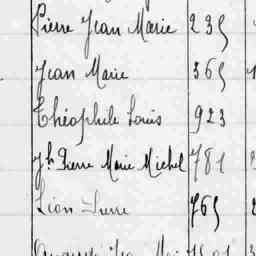 Pierre Jean Marie 235
Jean Marie 365
Théophile Louis 923
Jh Pierre Marie Michel 781
Léon Pierre 765